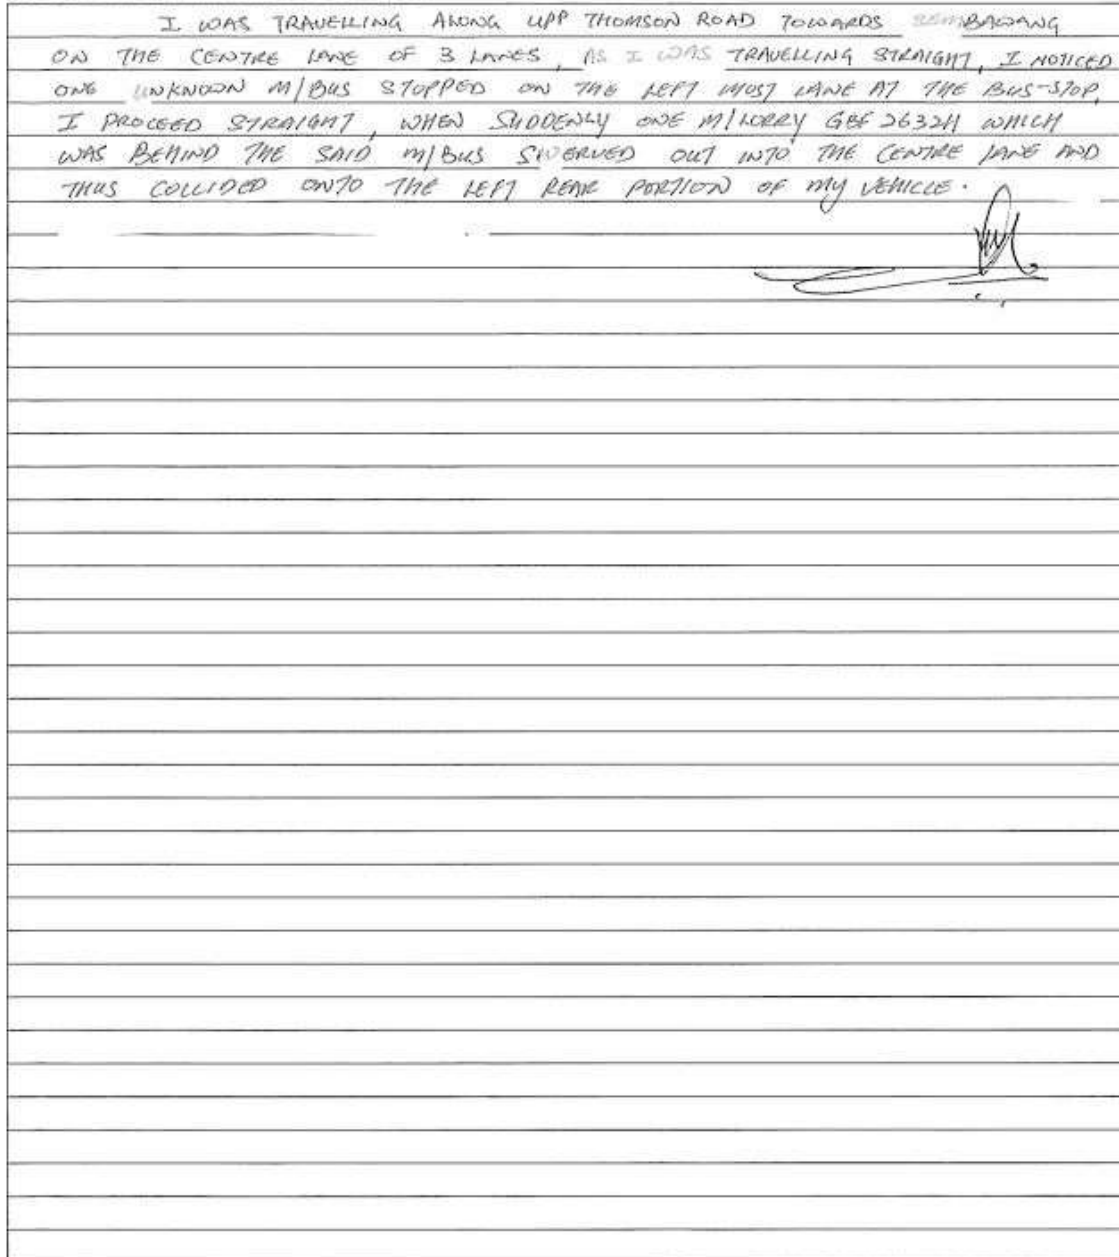 I WAS TRAVELLING ALONG UPP THOMSON ROAD TOWARDS SEMBAWANG
ON THE CENTRE LANE OF 3 LANES, AS I WAS TRAVELLING STRAIGHT, I NOTICED
ONE UNKNOWN M/BUS STOPPED ON THE LEFT MOST LANE AT THE BUS-STOP,
I PROCEED STRAIGHT, WHEN SUDDENLY ONE M/LORRY GBF 2632H WHICH
WAS BEHIND THE SAID M/BUS SWERVED OUT INTO THE CENTRE LANE AND
THUS COLLIDED ONTO THE LEFT REAR PORTION OF MY VEHICLE.